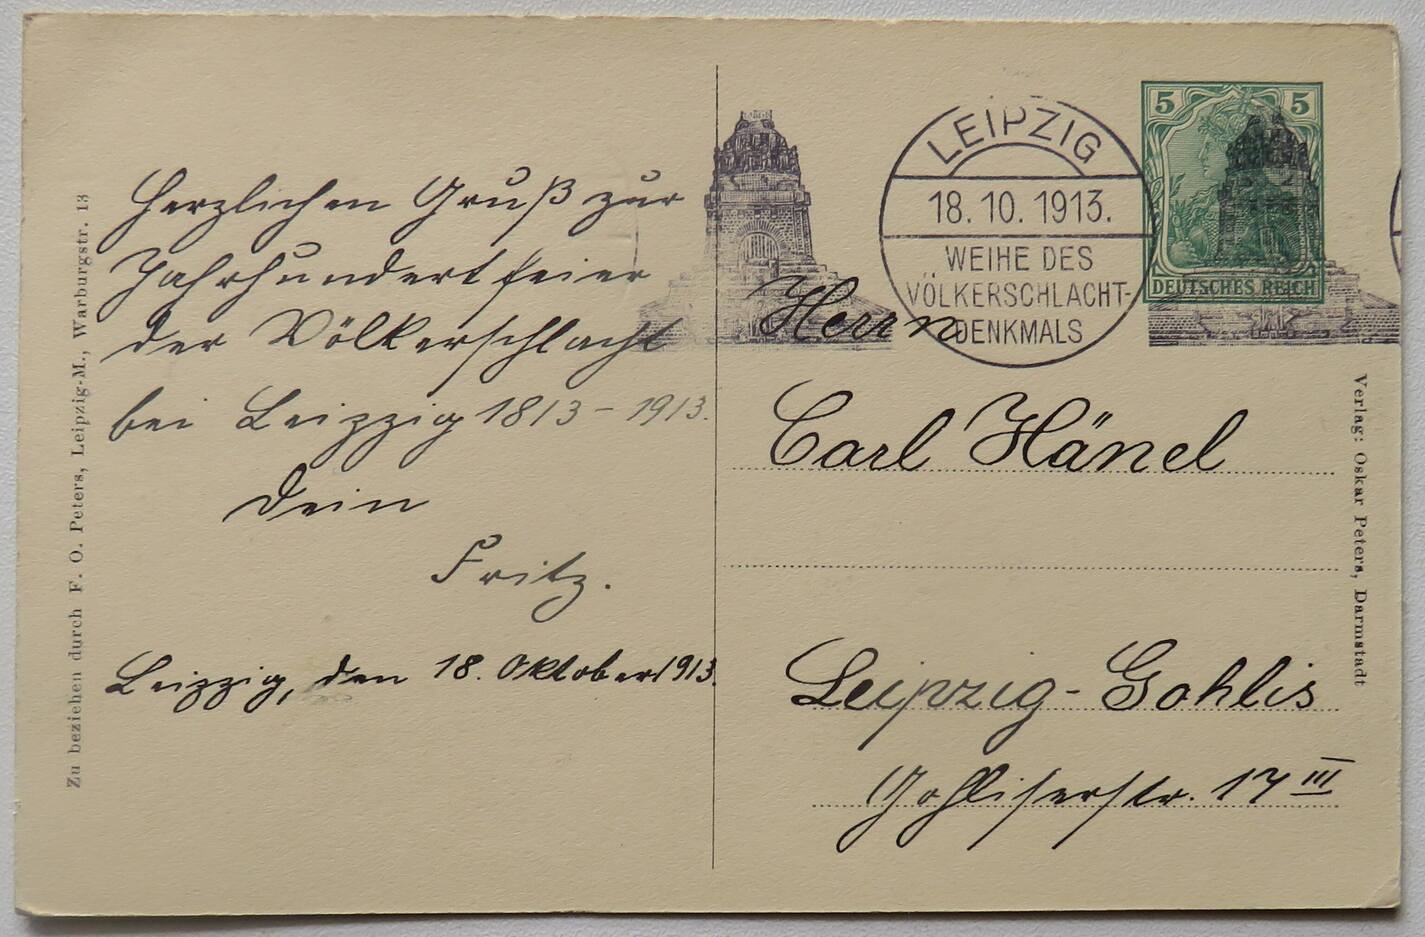 Zu beziehen durch F. O. Peters, Leipzig-M., Warburgstr. 13
Herzlichen Gruß zur
Jahrhundertfeier
der Völkerschlacht
bei Leipzig 1813 – 1913.
Dein
Fritz.
Leipzig, den 18. Oktober 1913.
LEIPZIG
18. 10. 1913.
WEIHE DES
VÖLKERSCHLACHT-
DENKMALS
5 5
DEUTSCHES REICH
Herrn
Carl Hänel
Leipzig-Gohlis
Gohliserstr. 17 III
Verlag: Oskar Peters, Darmstadt